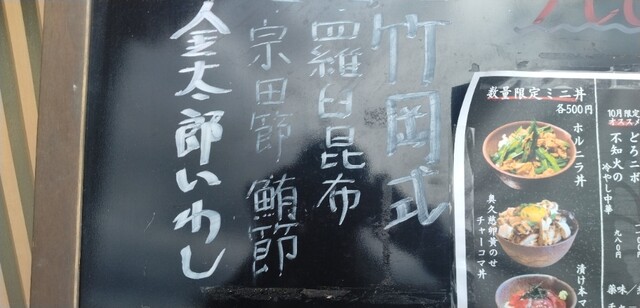 竹岡式
羅臼昆布
宗田節 鮪節
金太郎いわし
数量限定ミニ丼
各500円
ホルニラ丼
奥久慈卵黄のせ
チャーコマ丼
漬け本マ
10月限定
オススメ
どろニボ
不知火の
冷やし中華
九八〇円
薬味